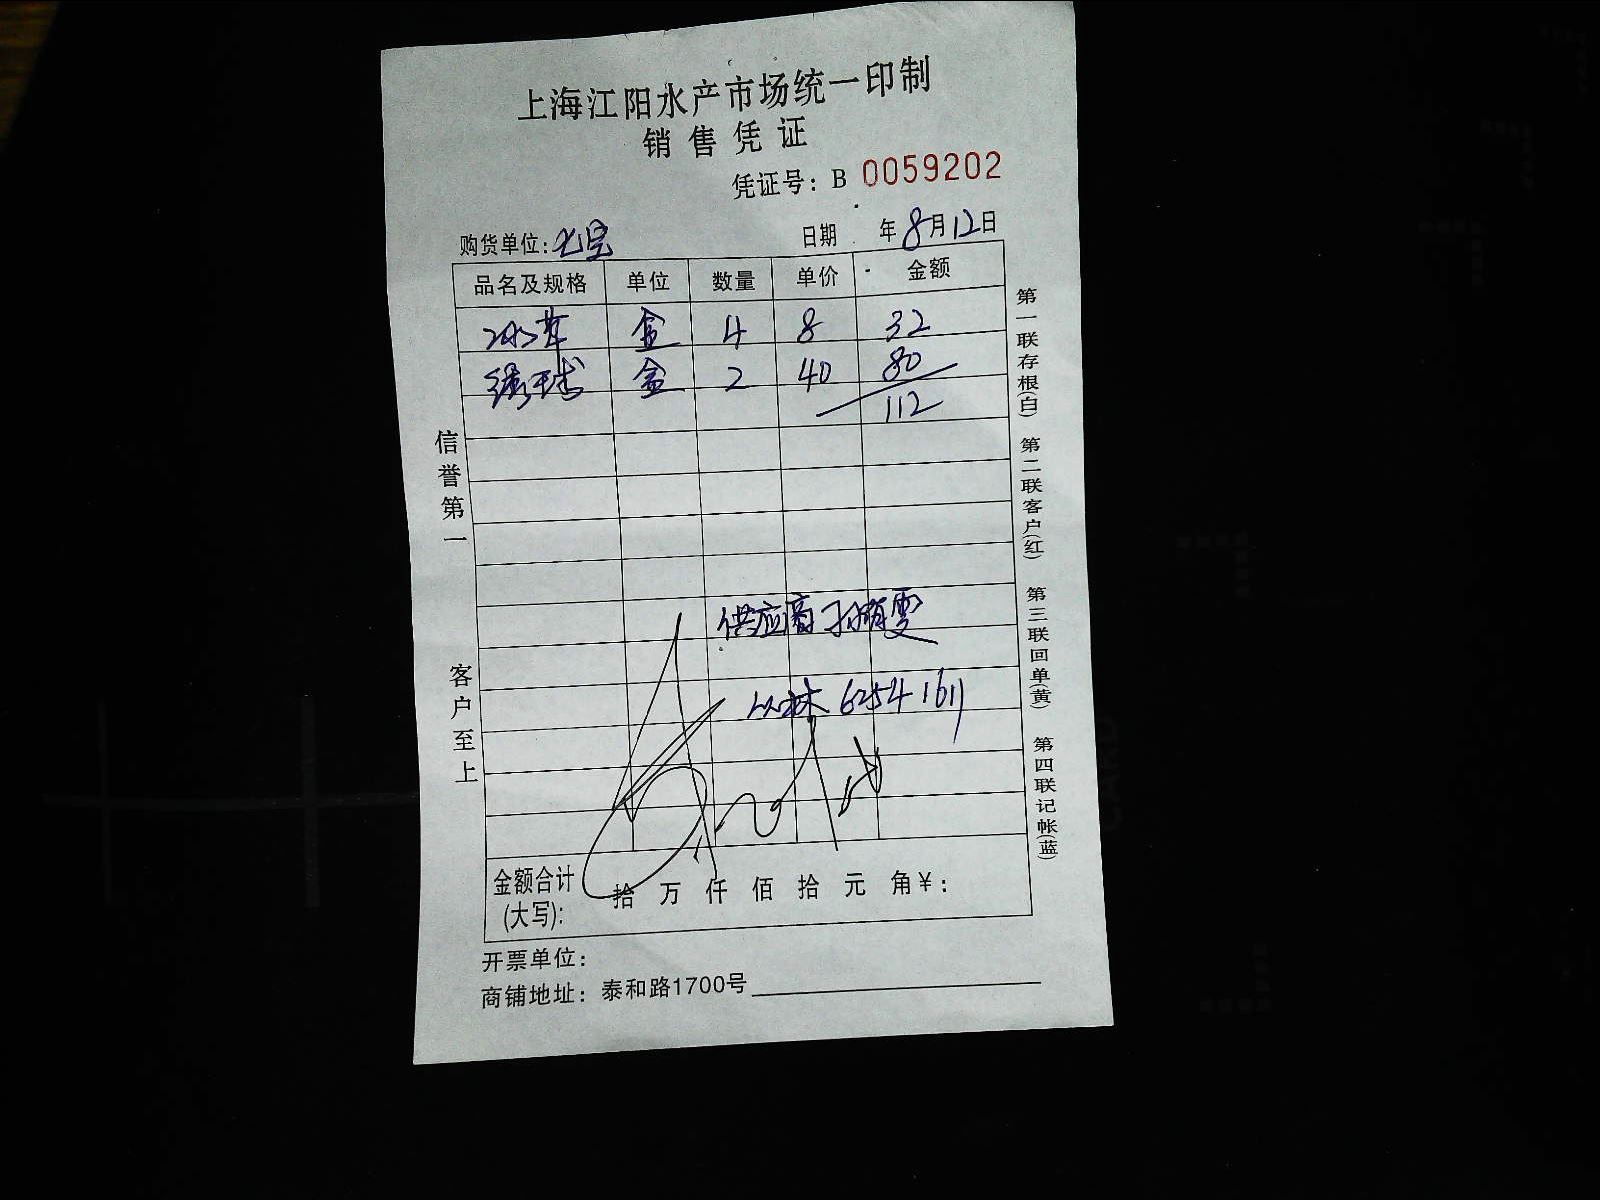 上海江阳水产市场统一印制
销售凭证
凭证号：B 0059202
购货单位：七宝 日期 年8月12日
品名及规格 单位 数量 单价 金额
盒 4 8 32
绣球 盒 2 40 80
112
供应商
6254 1611
金额合计(大写)： 拾 万 仟 佰 拾 元 角 ¥：
开票单位：
商铺地址：泰和路1700号
信誉第一
客户至上
第一联存根(白)
第二联客户(红)
第三联回单(黄)
第四联记帐(蓝)